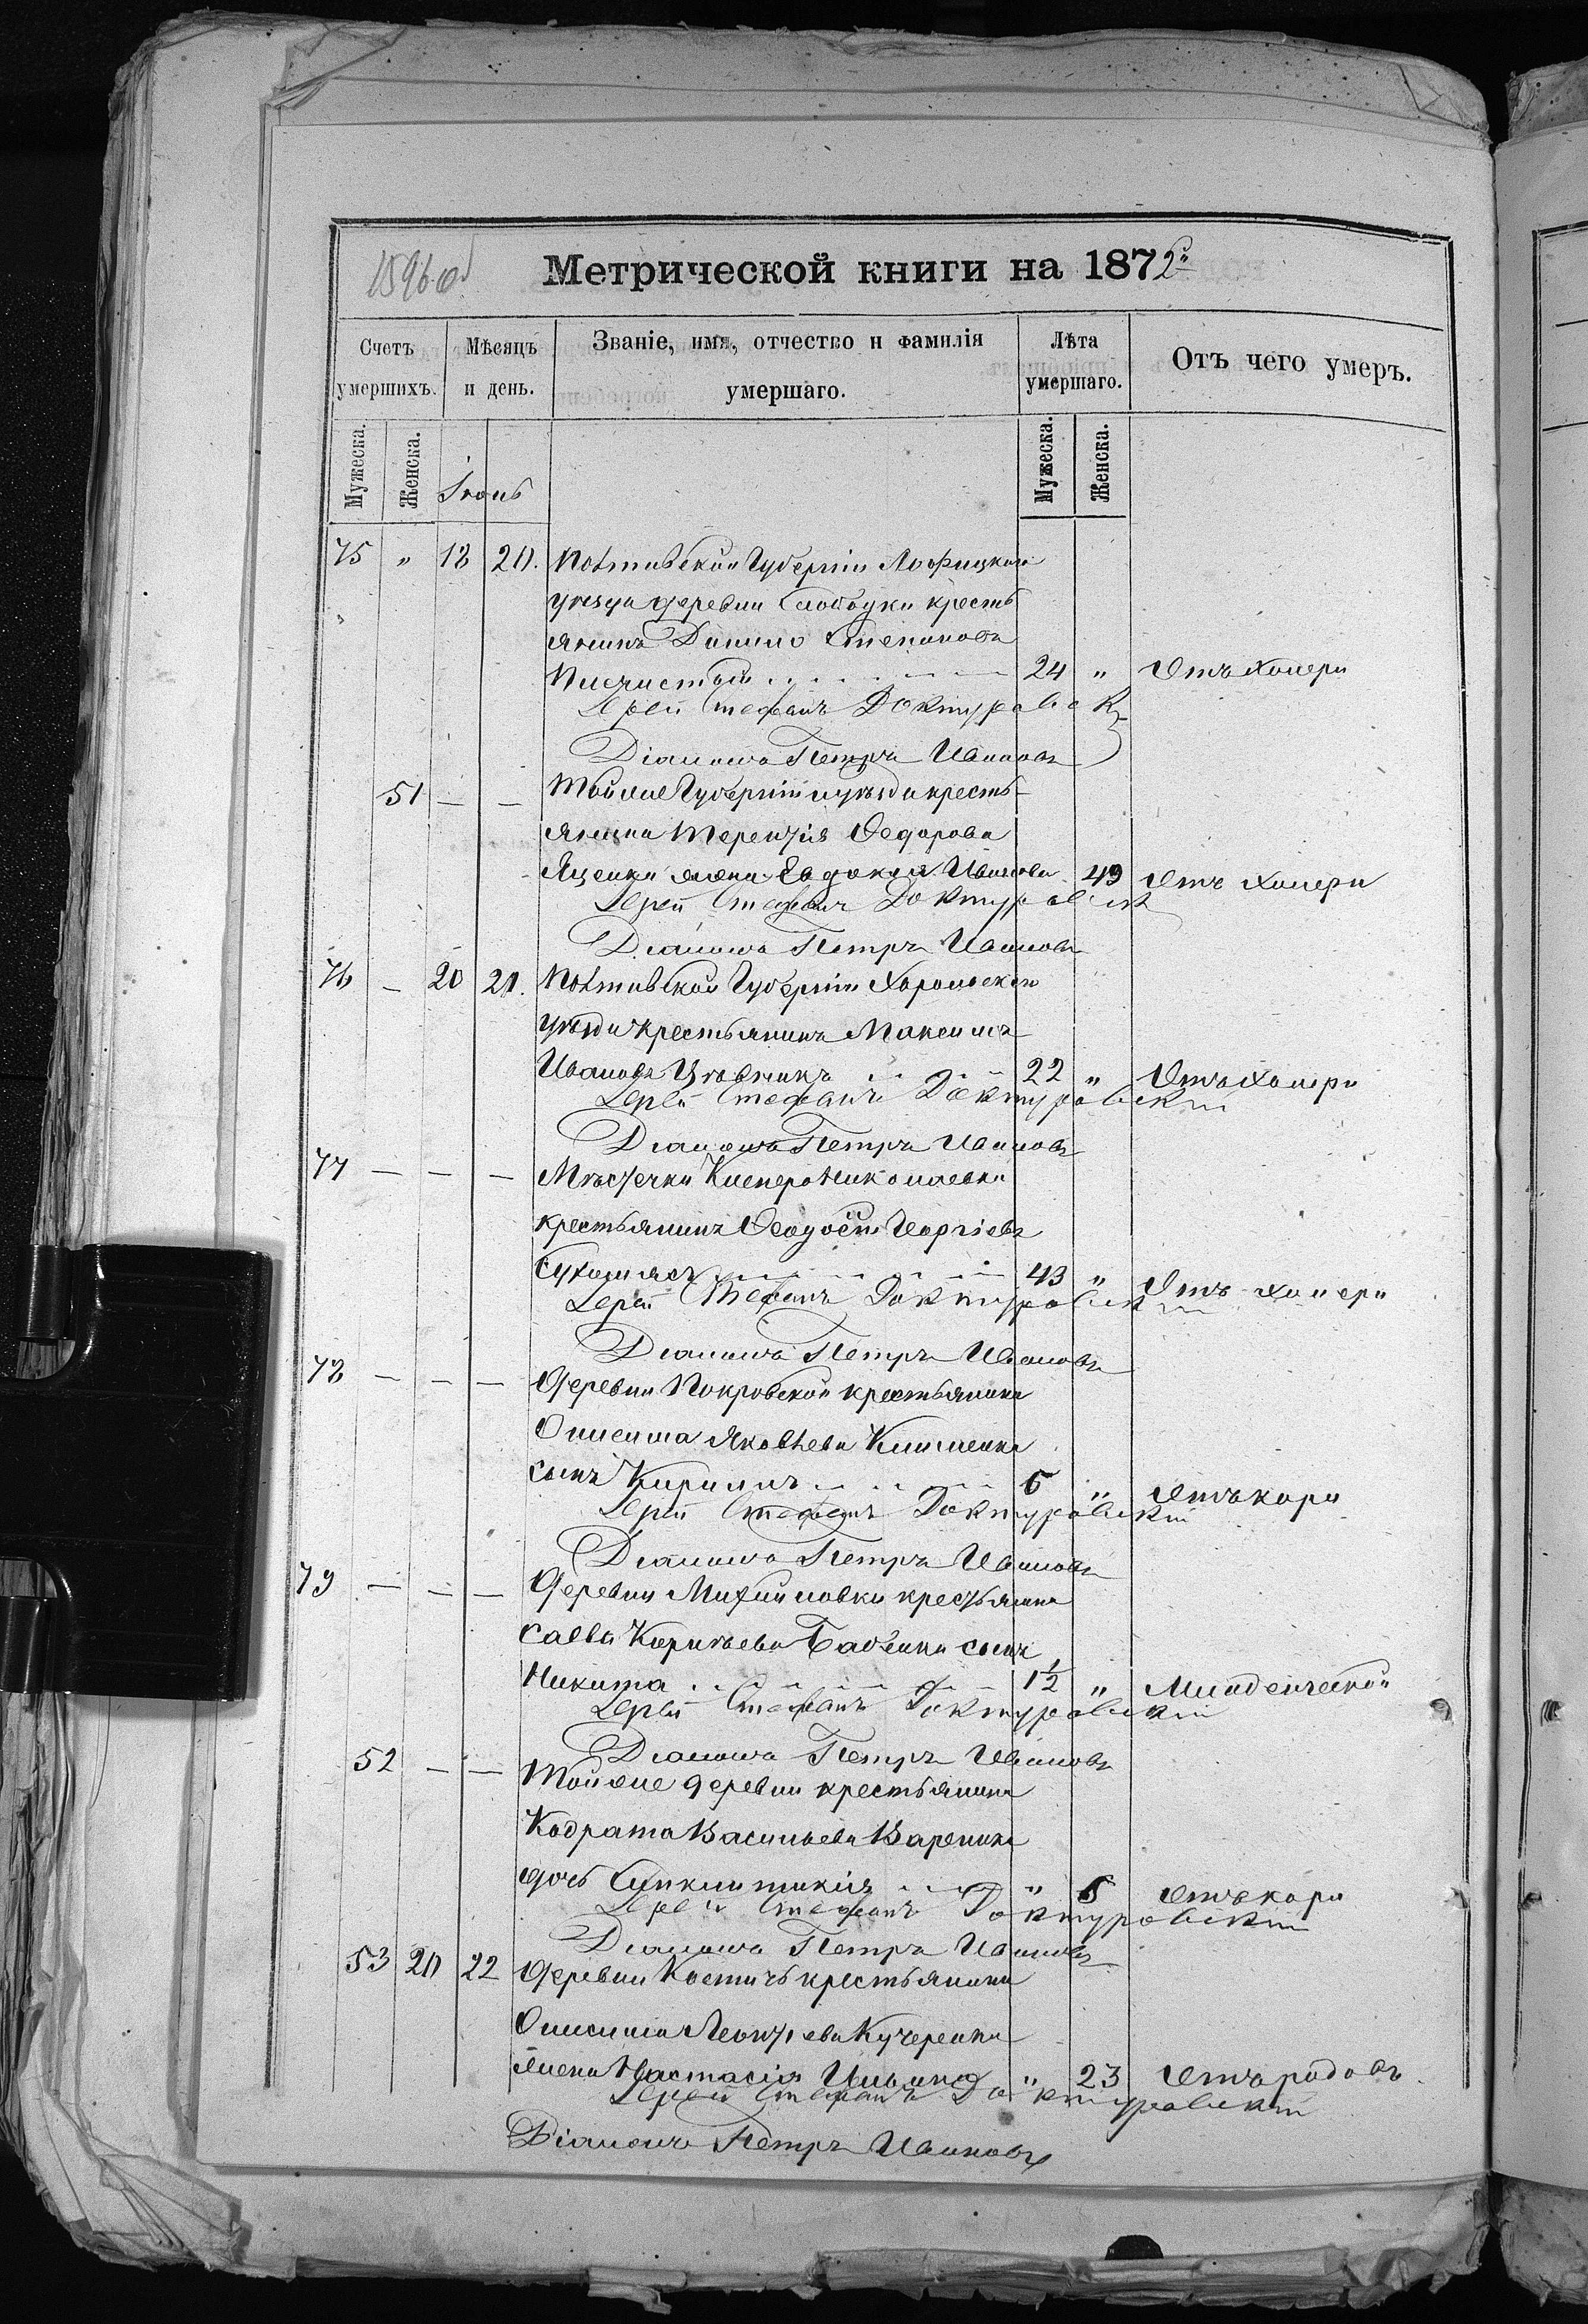 1596 об
Метрической книги на 1872й
Счетъ умершихъ.
Мѣсяцъ и день.
Званіе, имя, отчество и фамилія умершаго.
Лѣта умершаго.
Отъ чего умеръ.
Мужеска. Женска. Мужеска. Женска.
Іюнь
75 „ 18 20. Полтавской Губерніи Лохвицкаго
уѣзда деревни Слободки кресть
янинъ Данило Степановъ
24 „ Отъ холеры
Іерей Стефанъ Доктуровск
Діаконъ Петръ Ивановъ
51 — — Той же Губерніи и уѣзда кресть-
янина Терентія Ѳедорова
Яценка жена Евдокия Иванова 49 Отъ холеры
Іерей Стефанъ Доктуровскій
Діаконъ Петръ Ивановъ
76 — 20 21. Полтавской Губерніи Хорольскаго
уѣзда крестьянинъ Максимъ
Ивановъ 22 „ Отъ холеры
Іерей Стефанъ Доктуровскій
Діаконъ Петръ Ивановъ
77 — — — Мѣстечка Кнеперо Николаевки
крестьянинъ Ѳеодосій Георгіевъ
43 „ Отъ холеры
Іерей Стефанъ Доктуровскій
Діаконъ Петръ Ивановъ
78 — — — Деревни Покровской крестьянина
Онисима Яковлева Клименка
сынъ Кирилъ 6 „ Отъ кори
Іерей Стефанъ Доктуровскій
Діаконъ Петръ Ивановъ
79 — — — Деревни Михайловки крестьянина
Савы Корнѣева Бабенка сынъ
Никита 1½ „ Младенческой
Іерей Стефанъ Доктуровскій
Діаконъ Петръ Ивановъ
52 — — Той же деревни крестьянина
Кодрата Васильева Вареника
дочь Синклитикія „ 6 Отъ кори
Іерей Стефанъ Доктуровскій
Діаконъ Петръ Ивановъ
53 20 22 Деревни Костичъ крестьянина
Онисима Леонтіева Кучеренка
жена Настасія Ильина „ 23 Отъ родовъ.
Іерей Стефанъ Доктуровскій
Діаконъ Петръ Ивановъ